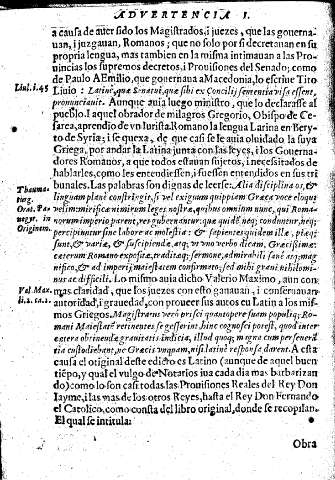 ADVERTENCIA I.
a causa de auer sido los Magistrados, i juezes, que las gouerna-
uan, i juzgauan, Romanos; que no solo fi decretauan en su
propria lengua, mas tambien en la misma intimauan a las Pro-
uincias los supremos decretos, i Prouisiones del Senado; como
de Paulo AEmilio, que gouernaua a Macedonia, lo escriue Tito
Liui.l.45
Liuio: Latinè, quæ Senatui, quæ sibi ex Concilij sententia visa essent,
pronunciauit. Aunque auia luego ministro, que lo declarasse al
pueblo. I aquel obrador de milagros Gregorio, Obispo de Ce-
sarea, aprendio de vn Iurista Romano la lengua Latina en Bery-
to de Syria; i se quexa, de que casi se le auia oluidado la suya
Griega, por andar la Latina junta con las leyes, i los Gouerna-
dores Romanos, a que todos estauan sujetos, i necesitados de
hablarles, como les entendiessen, i fuessen entendidos en sus tri
bunales. Las palabras son dignas de leerse: Alia disciplina os, &
Thauma-
turg.
Orat. Pa-
negyr. in
Originem.
linguam planè constringit, si vel exiguum quippiam Græca voce eloqui
velim: mirificæ nimirum leges nostræ, quibus omnium nunc, qui Roma-
norum imperio parent, res gubernantur: quæ quidẽ neq; conduntur, neq;
percipiuntur sine labore ac molestia: & sapientes quidem illæ, piæq;
sunt, & variæ, & suscipiendæ, atq; vt vno verbo dicam, Græcissimæ:
cæterum Romano expositæ, traditæq; sermone, admirabili sanè atq; mag
nifico, & ad imperij maiestatem conformato; sed mihi grani nihilomi-
nus ac difficili. Lo mismo auia dicho Valerio Maximo, aun con
Val. Max.
li.2. ca.2.
mas claridad, que los juezes con esto ganauan, i conseruauan
autoridad, i grauedad, con proueer sus autos en Latin a los mis-
mos Griegos. Magistratus verò prisci quantopere suam populiq; Ro-
mani Maiestatẽ retinentes se gesserint, hinc cognosci potest, quod inter
cætera obtinendæ grauitatis indicia, illud quoq; magna cum perseuerã
tia custodiebant, ne Græcis vnquam, nisi latinè responsa darent. A esta
causa el original deste edicto es Latino (aunque de aquel buen
tiẽpo, y qual el vulgo de Notarios iua cada dia mas barbarizan
do) como lo son casi todas las Prouisiones Reales del Rey Don
Iayme, i las mas de los otros Reyes, hasta el Rey Don Fernando
el Catolico, como consta del libro original, donde se recopilan.
El qual se intitula:
Obra